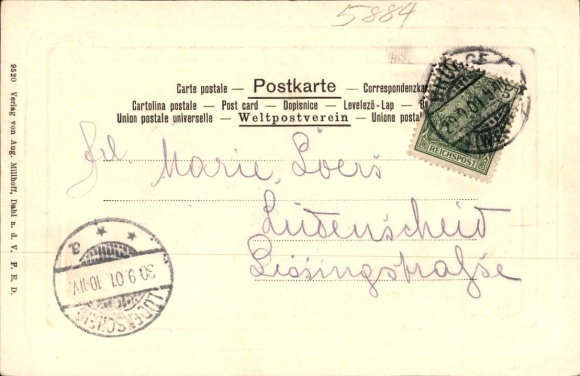 5884
Carte postale — Postkarte — Correspondenzkar
Cartolina postale — Post card — Dopisnice — Levelező-Lap —
Union postale universelle — Weltpostverein — Unione posta
REICHSPOST
29.9.01
Frl. Marie Loers
Lüdenscheid
Lessingstraße
LÜDENSCHEID
30.9.01. 10-11V.
* * a
9520 Verlag von Aug. Millhoff, Dahl a. d. V. P. E. D.